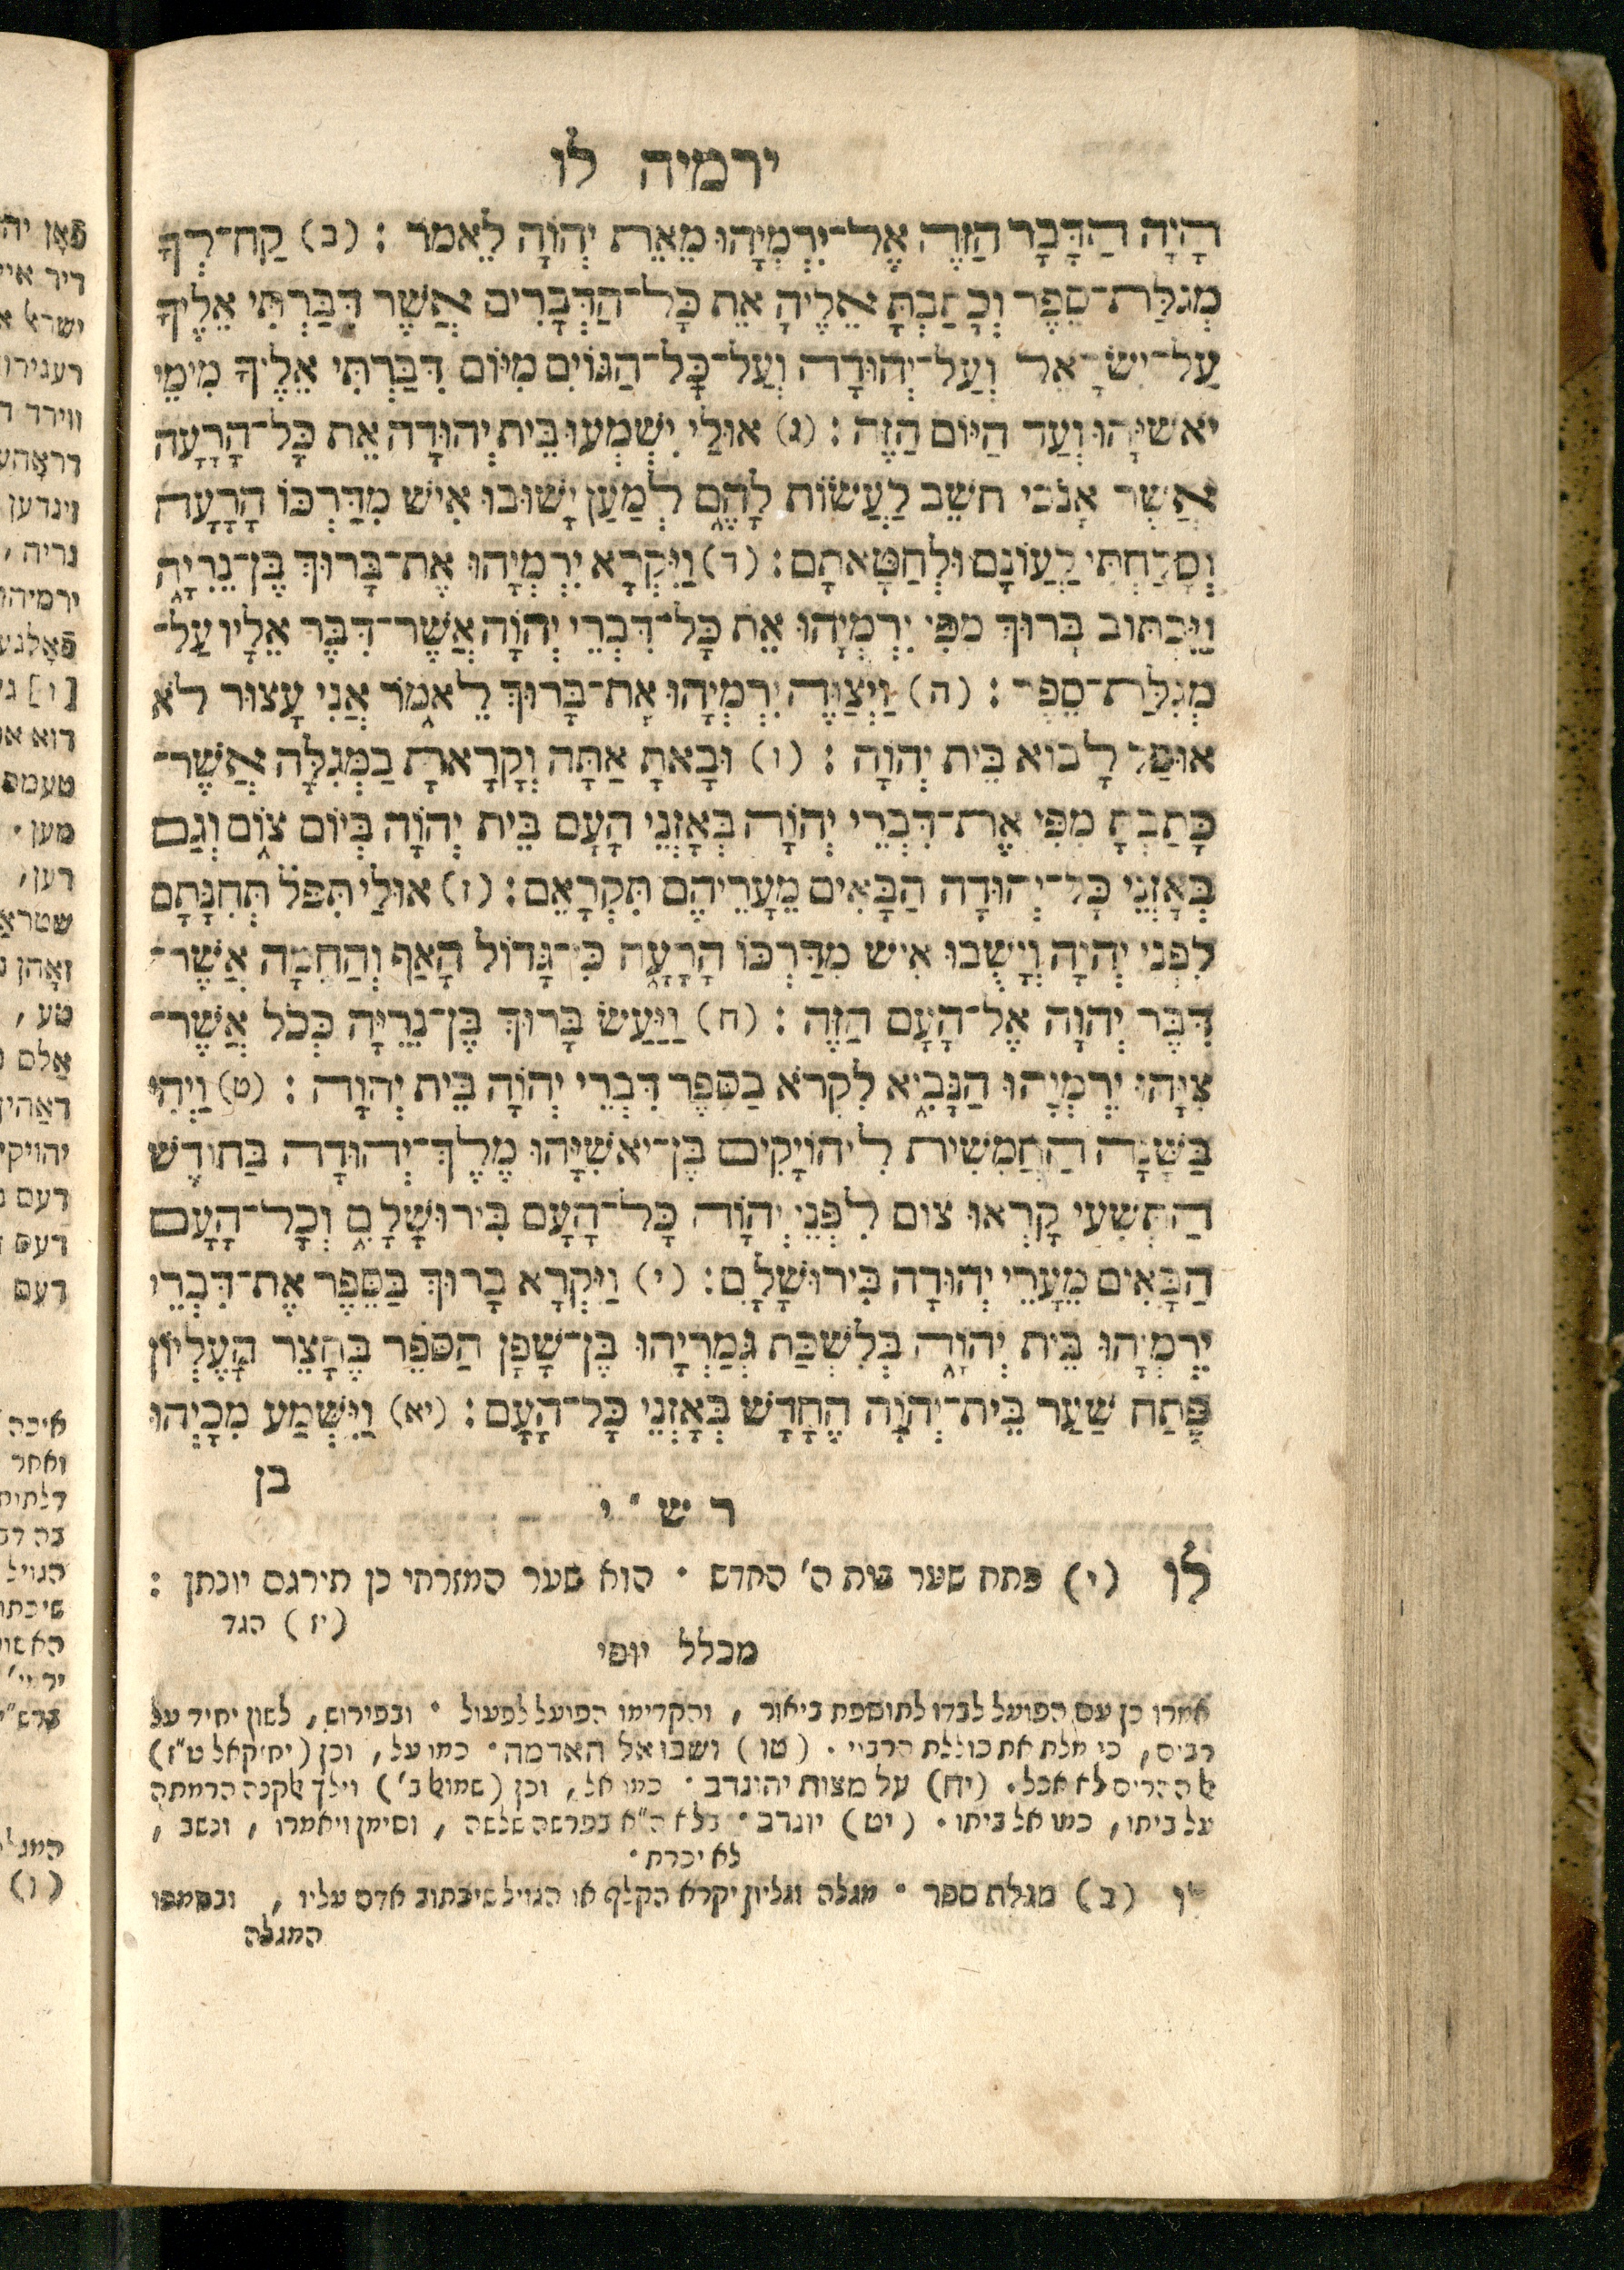 ירמיה לו
הָיָה הַדָּבָר הַזֶּה אֶל־יִרְמְיָהוּ מֵאֵת יְהוָֹה לֵאמֹר : (ב) קַח־לְךָ
מְגִלַּת־סֵפֶר וְכָתַבְתָּ אֵלֶיהָ אֵת כָּל־הַדְּבָרִים אֲשֶׁר דִּבַּרְתִּי אֵלֶיךָ
עַל־יִשְׂרָאֵל וְעַל־יְהוּדָה וְעַל־כָּל־הַגּוֹיִם מִיּוֹם דִּבַּרְתִּי אֵלֶיךָ מִימֵי
יֹאשִׁיָּהוּ וְעַד הַיּוֹם הַזֶּה : (ג) אוּלַי יִשְׁמְעוּ בֵּית יְהוּדָה אֵת כָּל־הָרָעָה
אֲשֶׁר אָנֹכִי חֹשֵׁב לַעֲשׂוֹת לָהֶם לְמַעַן יָשׁוּבוּ אִישׁ מִדַּרְכּוֹ הָרָעָה
וְסָלַחְתִּי לַעֲוֹנָם וּלְחַטָּאתָם : (ד) וַיִּקְרָא יִרְמְיָהוּ אֶת־בָּרוּךְ בֶּן־נֵרִיָּה
וַיִּכְתּוֹב בָּרוּךְ מִפִּי יִרְמְיָהוּ אֵת כָּל־דִּבְרֵי יְהוָֹה אֲשֶׁר־דִּבֶּר אֵלָיו עַל־
מְגִלַּת־סֵפֶר : (ה) וַיְצַוֶּה יִרְמְיָהוּ אֶת־בָּרוּךְ לֵאמֹר אֲנִי עָצוּר לֹא
אוּכַל לָבוֹא בֵּית יְהוָֹה : (ו) וּבָאתָ אַתָּה וְקָרָאתָ בַמְּגִלָּה אֲשֶׁר־
כָּתַבְתָּ מִפִּי אֶת־דִּבְרֵי יְהוָֹה בְּאָזְנֵי הָעָם בֵּית יְהוָֹה בְּיוֹם צוֹם וְגַם
בְּאָזְנֵי כָל־יְהוּדָה הַבָּאִים מֵעָרֵיהֶם תִּקְרָאֵם : (ז) אוּלַי תִּפֹּל תְּחִנָּתָם
לִפְנֵי יְהוָֹה וְיָשֻׁבוּ אִישׁ מִדַּרְכּוֹ הָרָעָה כִּי־גָדוֹל הָאַף וְהַחֵמָה אֲשֶׁר־
דִּבֶּר יְהוָֹה אֶל־הָעָם הַזֶּה : (ח) וַיַּעַשׂ בָּרוּךְ בֶּן־נֵרִיָּה כְּכֹל אֲשֶׁר־
צִוָּהוּ יִרְמְיָהוּ הַנָּבִיא לִקְרֹא בַסֵּפֶר דִּבְרֵי יְהוָֹה בֵּית יְהוָֹה : (ט) וַיְהִי
בַשָּׁנָה הַחֲמִשִׁית לִיהוֹיָקִים בֶּן־יֹאשִׁיָּהוּ מֶלֶךְ־יְהוּדָה בַּחוֹדֶשׁ
הַתְּשִׁעִי קָרְאוּ צוֹם לִפְנֵי יְהוָֹה כָּל־הָעָם בִּירוּשָׁלִָם וְכָל־הָעָם
הַבָּאִים מֵעָרֵי יְהוּדָה בִּירוּשָׁלִָם : (י) וַיִּקְרָא בָרוּךְ בַּסֵּפֶר אֶת־דִּבְרֵי
יִרְמְיָהוּ בֵּית יְהוָֹה בְּלִשְׁכַּת גְּמַרְיָהוּ בֶן־שָׁפָן הַסֹּפֵר בֶּחָצֵר הָעֶלְיוֹן
פֶּתַח שַׁעַר בֵּית־יְהוָֹה הֶחָדָשׁ בְּאָזְנֵי כָּל־הָעָם : (יא) וַיִּשְׁמַע מִכָיְהוּ
בן
רש"י
לו (י) פתח שער בית ה' החדש • הוא שער המזרחי כן תירגם יונתן :
(יז) הגד
מכלל יופי
אמרו כן עם הפועל לבדו לתוספת ביאור , והקדימו הפועל לפעול • ובפירוש , לשון יחיד על
רבים , כי מלת את כוללת הרבוי • (טו) ושבו אל האדמה • כמו על , וכן (יחזקאל ט"ז)
אל ההרים לא אכל • (יח) על מצות יהונדב • כמו אל , וכן (שמואל ב') וילך אלקנה הרמתה
על ביתו , כמו אל ביתו • (יט) יונדב • בלא ה"א בפרשה שלשה , וסימן ויאמרו , ונשב ,
לא יכרת •
לו (ב) מגלת ספר • מגלה וגליון יקרא הקלף או הגויל שיכתוב אדם עליו , ובסמפו
המגלה